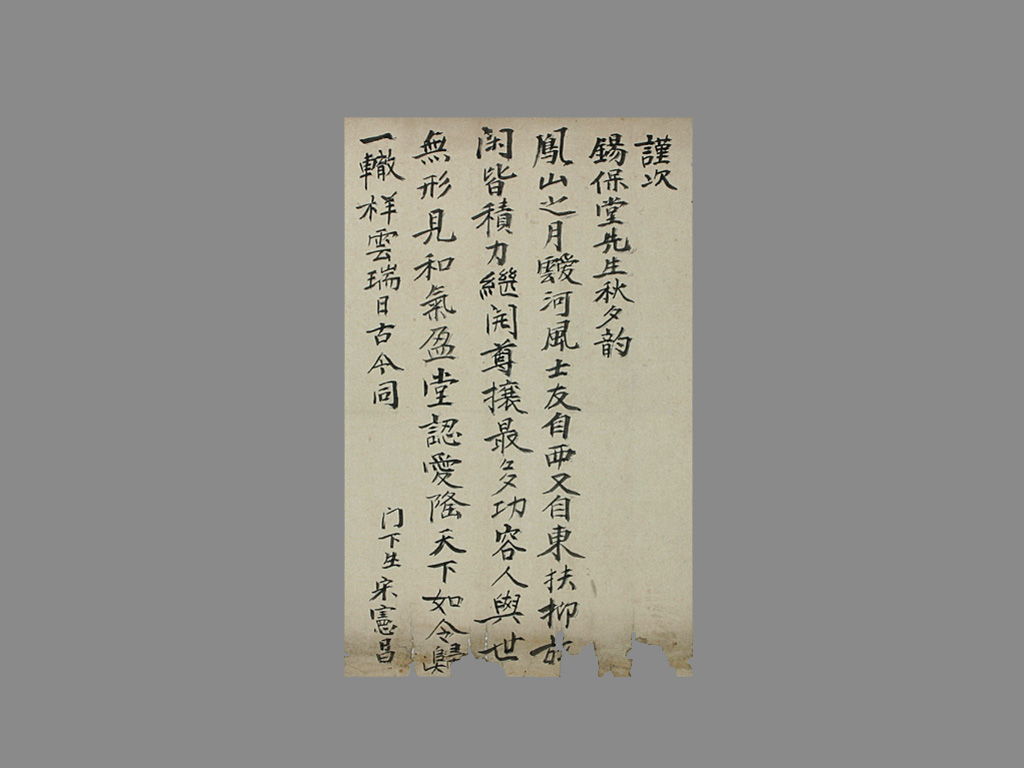 謹次
錫保堂先生秋夕韵
鳳山之月靉河風士友自西又自東扶抑放
閑皆積力繼開尊攘最多功容人與世
無形見和氣盈堂認愛隆天下如令歸
一轍祥雲瑞日古今同
门下生宋憲昌